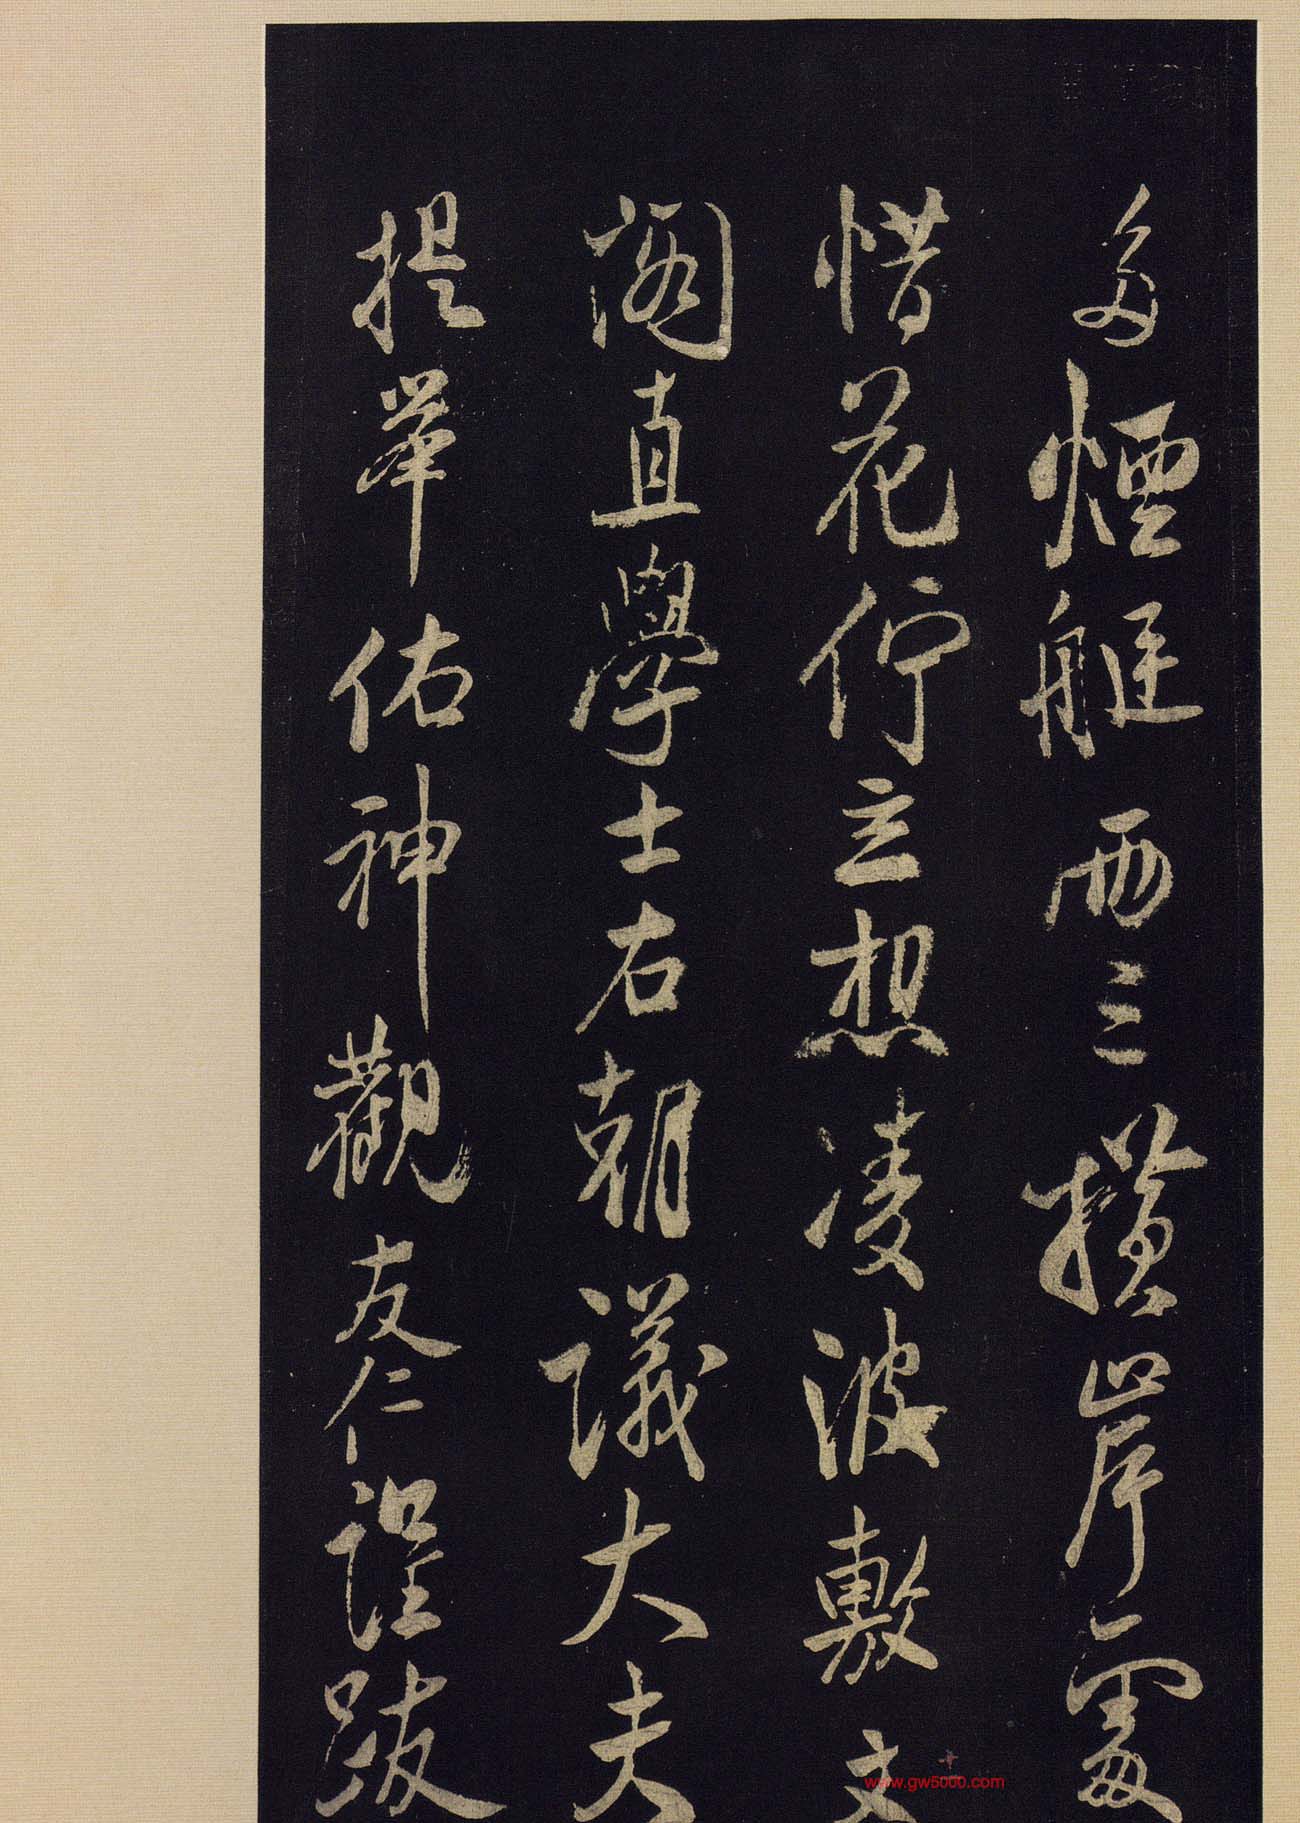 多煙艇两三橫岸
惜花佇立想凌波敷文
閣直學士右朝議大夫
提舉佑神觀友仁謹跋
www.gw5000.com